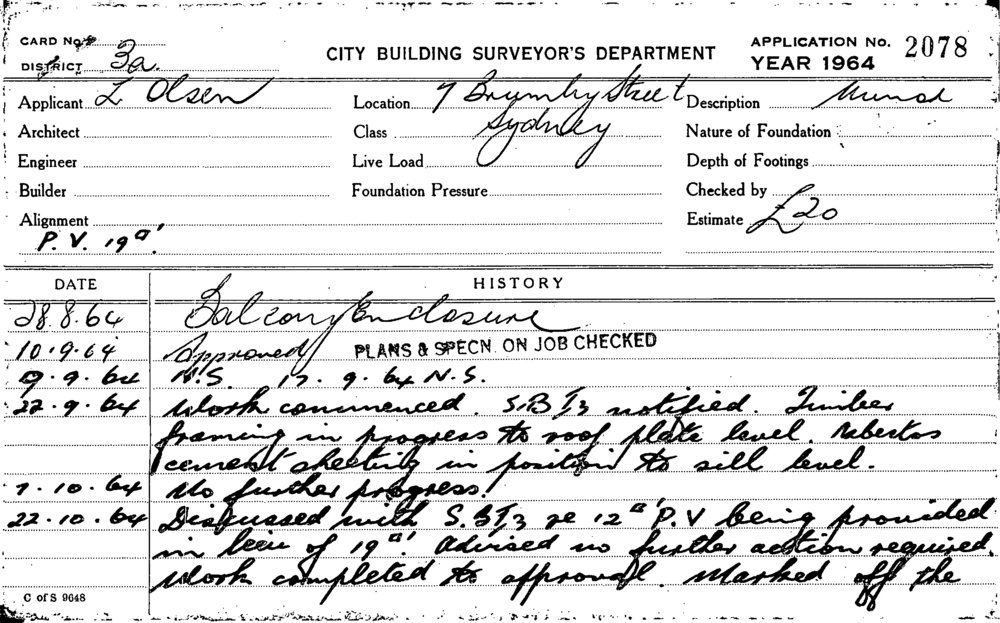 CARD No.
DISTRICT 3a.
CITY BUILDING SURVEYOR'S DEPARTMENT
APPLICATION No. 2078
YEAR 1964
Applicant L Olsen
Location 7 Brumby Street
Sydney
Description Minor
Architect
Class
Nature of Foundation
Engineer
Live Load
Depth of Footings
Builder
Foundation Pressure
Checked by
Alignment
Estimate £20
P.V. 19▫'.
DATE HISTORY
28.8.64 Balcony Enclosure
10.9.64 Approved PLANS & SPECN. ON JOB CHECKED
9.9.64 N.S. 17.9.64 N.S.
22.9.64 Work commenced. S.B.I3 notified. Timber
framing in progress to roof plate level. Asbestos
cement sheeting in position to sill level.
7.10.64 No further progress.
22.10.64 Discussed with S.B.I3 re 12▫' P.V being provided
in lieu of 19▫'. Advised no further action required.
Work completed to approval. Marked off the
C of S 9648